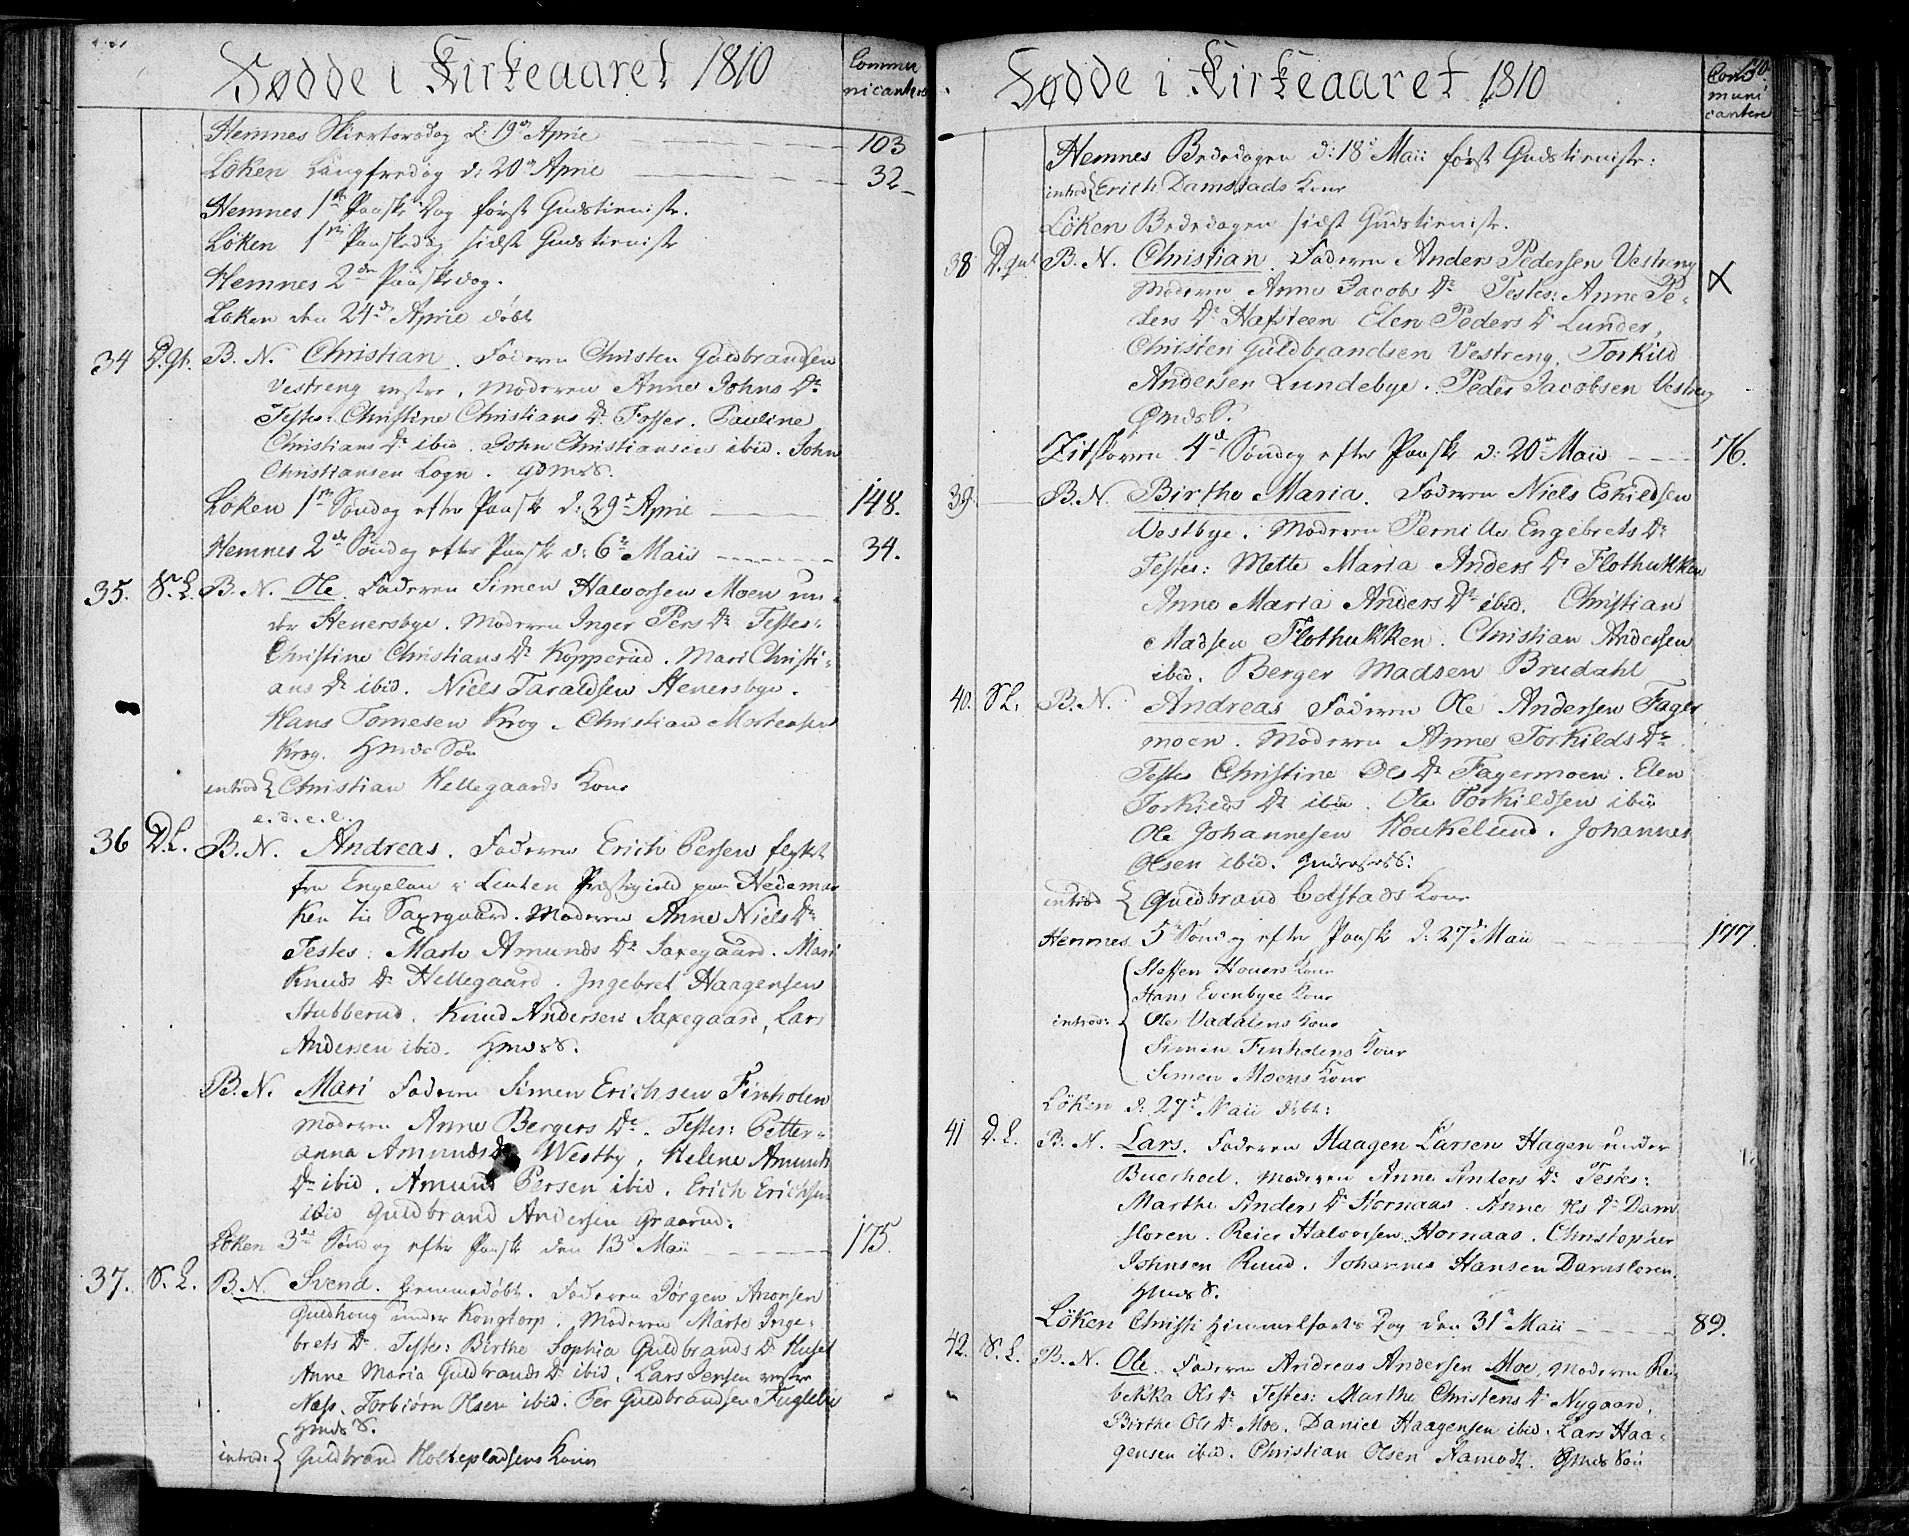 Fødde i Kirkeaaret 1810
Commu
nicantere
Hemnes Skiertorsdag d: 19de April 103
Löken Langfredag d: 20de April 32
Hemnes 1ste Paaske Dag först Gudstieniste.
Löken 1ste Paaskedag sidst Gudstieniste
Hemnes 2den Paaskedag.
Löken den 24de April döbt
34 D. gt. B. N. Christian. Faderen Christen Guldbrandsen
Vestreng vestre, Moderen Anne Johns Dr
Testes: Christine Christians Dr Fosser. Pauline
Christians Dr ibid. John Christiansen ibid. John
Christiansen Sogn. GdmsS.
Löken 1ste Söndag efter Paaske d: 29de April 148.
Hemnes 2den Söndag efter Paaske d: 6te Maii 34.
35. S. L. B. N. Ole. Faderen Simen Halvorsen Moen un-
der Henersbye. Moderen Inger Pers Dr Testes:
Christine Christians Dr Kopperud. Mari Christi-
ans Dr ibid. Niels Taraldsen Henersbye.
Hans Tomesen Krog. Christian Mortensen
Krog. Gmds Sön
introd { Christian Hellegaards Kone
e. d. e. l.
36 D. L. B. N. Andreas. Faderen Erich Persen flyttet
fra Engelau i Leuten Præstegield paa Hedemar
ken til Saxegaard. Moderen Anne Niels Dr
Testes: Marte Amunds Dr Saxegaard. Mari
Knuds Dr Hellegaard. Ingebret Haagensen
Stubberud. Knud Andersen Saxegaard, Lars
Andersen ibid. GmdsS.
B. N. Mari Faderen Simen Erichsen Finholen
Moderen Anne Bergers Dr. Testes: Petter-
anna Amunds Dr Westby, Helene Amunds
Dr ibid. Amund Persen ibid. Erich Erichsen
ibid Guldbrand Andersen Graarud.
Löken 3die Söndag efter Paaske den 13de Maii 175.
37. S. L. B. N. Svend. Hiemmedöbt. Faderen Jörgen Anorsen
Guldhoug under Kongtorp. Moderen Marte Inge-
brets Dr Testes: Birthe Sophia Guldbrands Dr Huset
Anne Maria Guldbrands Dr ibid. Lars Jensen vestre
Næss. Torbiörn Olsen ibid. Per Guldbrandsen Fuglebye
Gmds S.
introd: { Guldbrand Holtepladsens Kone
Fødde i Kirkeaaret 1810
Com
muni
cantere
Hemnes Bededagen d: 18de Maii först Gudstieniste:
introd { Erich Damstads Kone
Löken Bededagen sidst Gudstieniste.
38 D. gt B. N. Christian. Faderen Anders Pedersen Vestreng
Moderen Anne Jacobs Dr Testes: Anne Pe-
ders Dr Hafsteen Elen Peders Dr Lunder,
Christen Guldbrandsen Vestreng, Torkild
Andersen Lundebye. Peder Jacobsen Vestreng
GmdsS.
Zitskoven 4de Söndag efter Paaske d: 20de Maii 76.
39 B. N. Birthe Maria. Faderen Niels Eskildsen
Vestbye. Moderen Pernille Engebrets Dr
Testes: Mette Maria Anders Dr Flothukken
Anne Maria Anders Dr ibid. Christian
Madsen Flothukken. Christian Andersen
ibid. Berger Madsen Brudahl
40. S L. B. N. Andreas Faderen Ole Andersen Fager
moen. Moderen Anne Torkilds Dr
Testes Christine Ols Dr Fagermoen. Elen
Torkilds Dr ibid. Ole Torkildsen ibid
Ole Johannesen Houkelund. Johannes
Olsen ibid.
introd { Guldbrand Colstads Kone
Hemnes 5te Söndag efter Paaske d: 27de Maii 177.
Steffen Houers Kone
Hans Evenbyes Kone
introd: { Ole Vadalens Kone
Simen Finholens Kone
Simen Moens Kone
Löken d: 27de Maii döbt:
41 D. L. B. N. Lars. Faderen Haagen Larsen Hagen under
Buerhoel. Moderen Anne Anders Dr Testes:
Marthe Anders Dr Hornaas. Anne Ols Dr Dam
floren. Reier Halvorsen Hornaas. Christopher
Johnsen Ruud. Johannes Hansen Damfloren.
Gmds S.
Löken Christi Himmelfarts Dag den 31te Maii 89.
42. S. L. B. N. Ole. Faderen Andreas Andersen Moe, Moderen Reb
bekka Ols Dr Testes: Marthe Christens Dr Nygaard,
Birthe Ols Dr Moe. Daniel Haagensen ibid. Lars Haa-
gensen ibid. Christian Olsen Aamodt. Gmds Sön